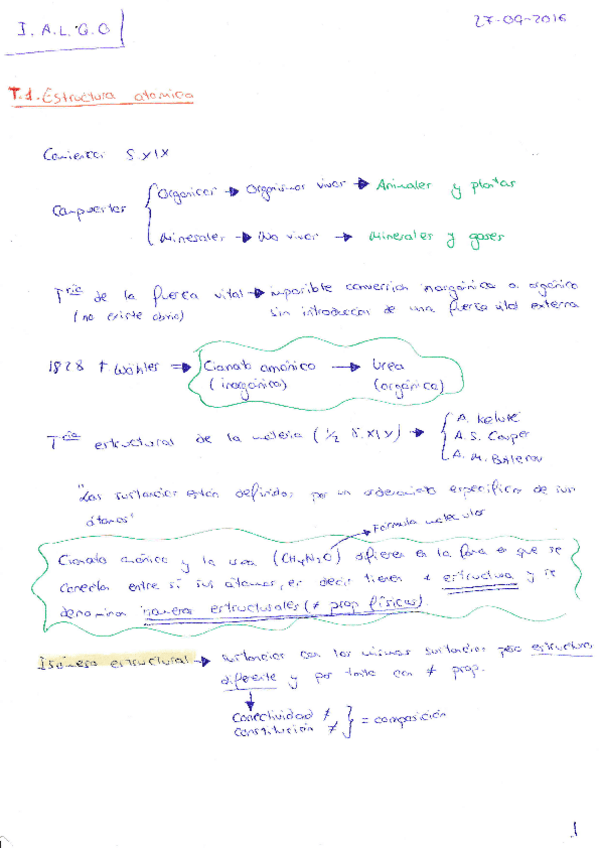 I. A. L. G. O
27-09-2016
T.1. Estructura atomica
Comienzos S. XIX
Compuestos
Organicos → Organismos vivos → Animales y plantas
Minerales → No vivos → Minerales y gases
Tría de la fuerza vital → imposible conversion inorgánica a orgánica
(no existe ahora) sin introduccion de una fuerza vital externa
1828 F Wöhler ⇒ Cianato amónico → Urea
(inorgánico) (orgánica)
Tría estructural de la materia (1/2 S.XIX) →
A. Kekulé
A. S. Couper
A. M. Butlerov
"Las sustancias están definidas por un ordenamiento específico de sus
átomos"
Fórmula molecular
Cianato amónico y la urea (CH4N2O) difieren en la forma en que se
conectan entre sí sus átomos, es decir tienen ≠ estructura y se
denominan isomeros estructurales (≠ prop físicas).
Isómero estructural → sustancias con las mismas sustancias pero estructura
diferente y por tanto con ≠ prop.
Conectividad ≠
Constitución ≠
} = composición
1